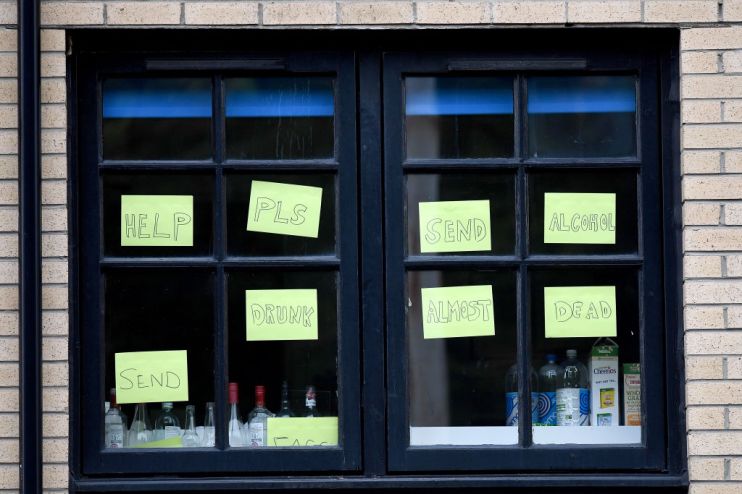 HELP PLS SEND ALCOHOL
DRUNK ALMOST DEAD
SEND FAGS
Cheerios